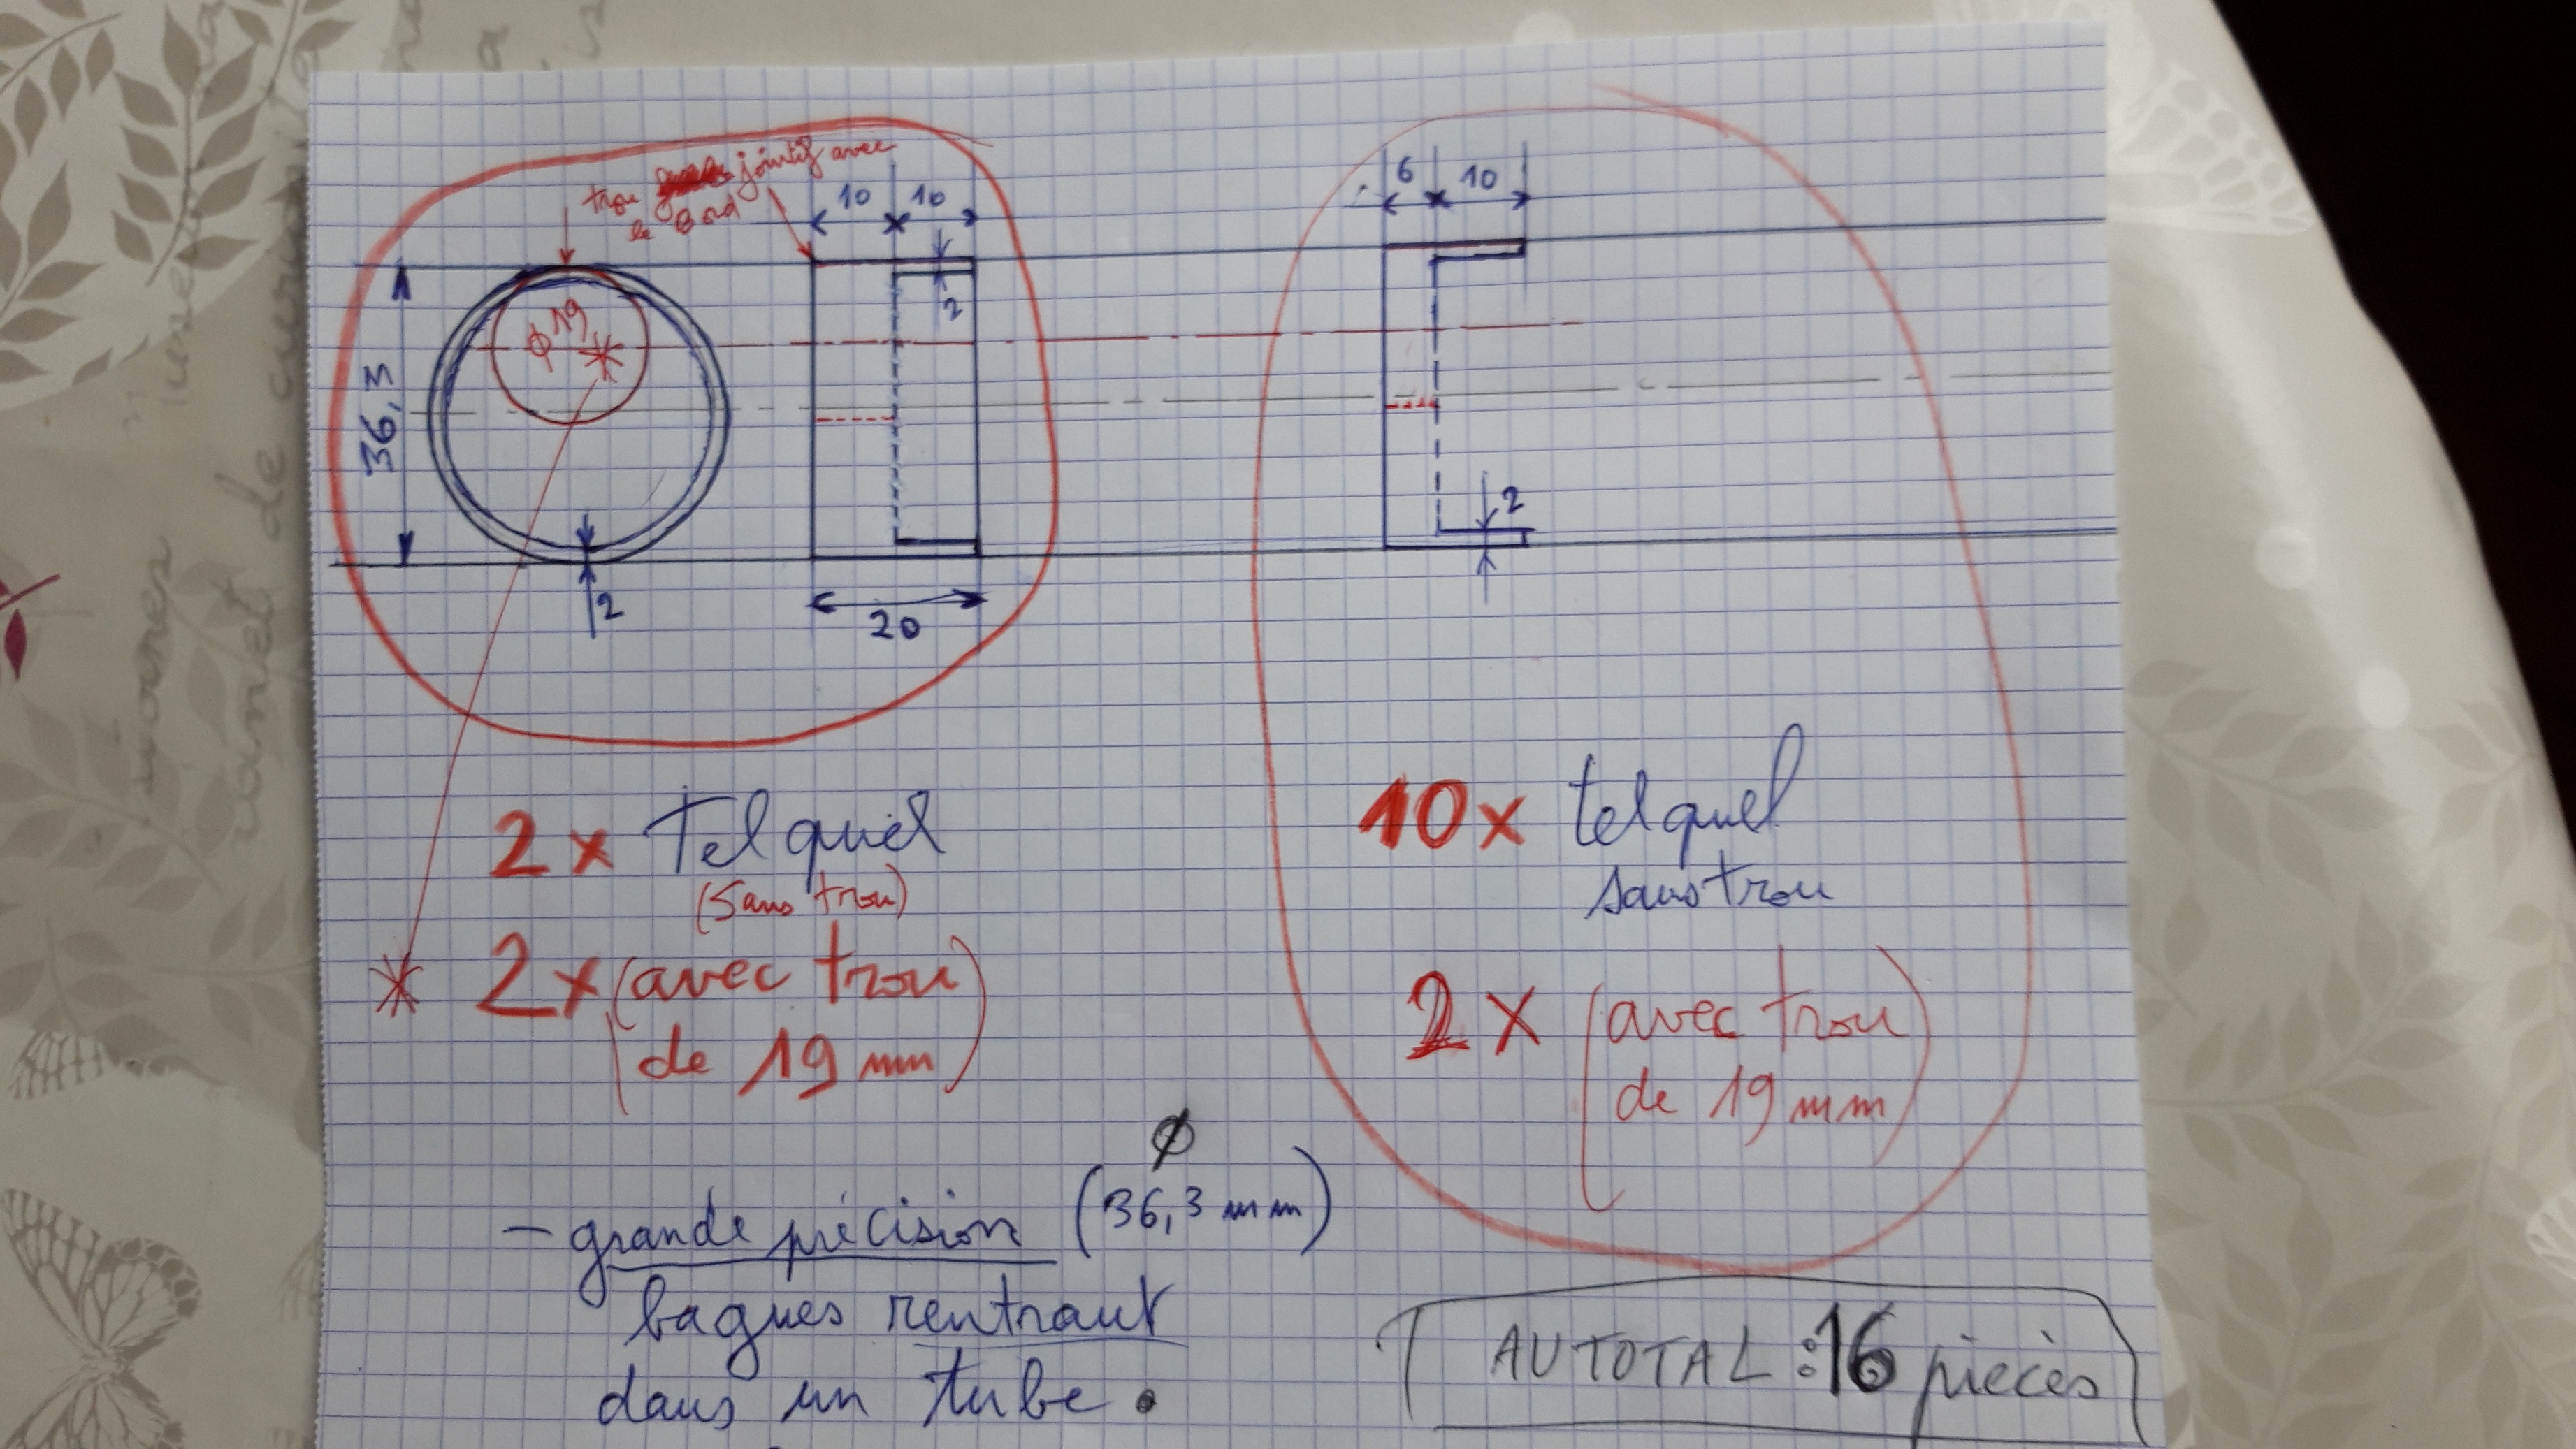 trou jointif avec
le Bord
10 10
6 10
φ19
*
2
36,3
2
2
20
2x Tel quel
(Sans trou)
* 2x (avec trou
de 19 mm)
10x tel quel
sans trou
2x (avec trou
de 19 mm)
φ
- grande précision (36,3 mm)
bagues rentrant
dans un tube.
AU TOTAL : 16 pièces